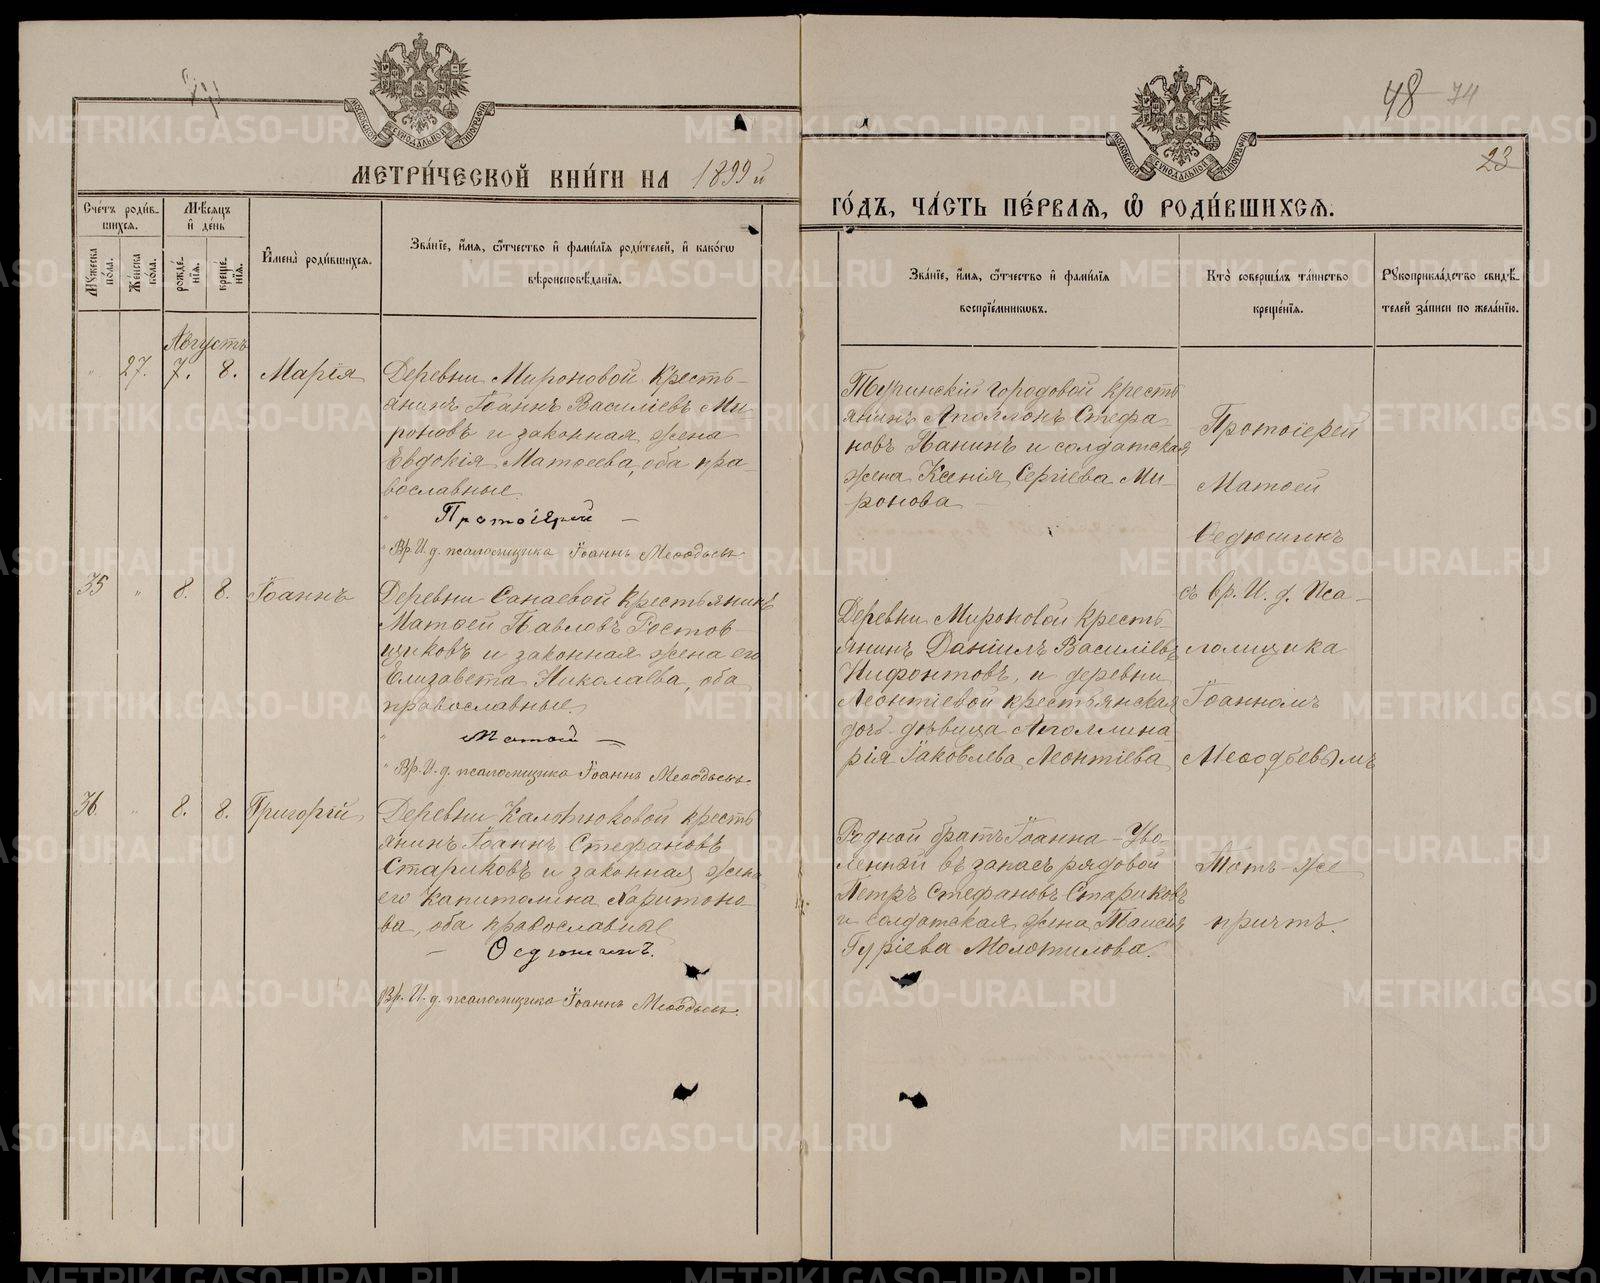 48 74
23
МЕТРИ́ЧЕСКОЙ КНИ́ГИ НА 1899 й
ГО́ДЪ, ЧА́СТЬ ПЕ́РВАЯ, Ѡ РОДИ́ВШИХСЯ.
Сче́тъ роди́в-
шихся.
Му́жеска
по́ла.
Же́нска
по́ла.
Мѣ́сяцъ
и́ де́нь
рожде́-
нїя.
креще́-
нїя.
И҆мена̀ роди́вшихся.
Зва́нїе, и҆́мя, ѻ҆́тчество и҆ фами́лїя роди́телей, и҆ како́гѡ
вѣроисповѣ́данїя.
Зва́нїе, и҆́мя, ѻ҆́тчество и҆ фами́лїя
воспрїе́мникѡвъ.
Кто̀ соверша́лъ та́инство
креще́нїя.
Рꙋкоприкла́дство свидѣ́-
телей за́писи по жела́нїю.
Августъ
" 27. 7. 8. Марія
Деревни Мироновой кресть-
янинъ Іоаннъ Василіевъ Ми-
роновъ и законная жена
Евдокія Матѳеева, оба пра-
вославные
Протоіерей
Вр. И. д. псаломщика Іоаннъ Меѳодьевъ
Туринскій городовой кресть
янинъ Аполлонъ Стефа
новъ Панинъ и солдатская
жена Ксенія Сергіева Ми
ронова
Протоіерей
Матѳей
Ѳедюшинъ
съ вр. И. д. Пса-
ломщика
Іоанномъ
Меѳодьевымъ
35 " 8. 8. Іоаннъ
Деревни Санаевой крестьянинъ
Матѳей Павловъ Ростов-
щиковъ и законная жена его
Елизавета Николаева, оба
православные.
Матѳей
Вр. И. д. псаломщика Іоаннъ Меѳодьевъ.
Деревни Мироновой кресть
янинъ Даніилъ Василіевъ
Нифонтовъ, и деревни
Леонтіевой крестьянская
дочь дѣвица Аполлина
рія Іаковлева Леонтіева
36 " 8. 8. Григорій
Деревни Калтюковой кресть
янинъ Іоаннъ Стефановъ
Стариковъ и законная жена
его Капитолина Харитоно
ва, оба православные
Ѳедюшинъ.
Вр. И. д. псаломщика Іоаннъ Меѳодьевъ.
Родной братъ Іоанна - Уво-
ленный въ запасъ рядовой
Петръ Стефановъ Стариковъ
и солдатская жена Таисія
Гуріева Молотилова.
Тотъ-же
причтъ.